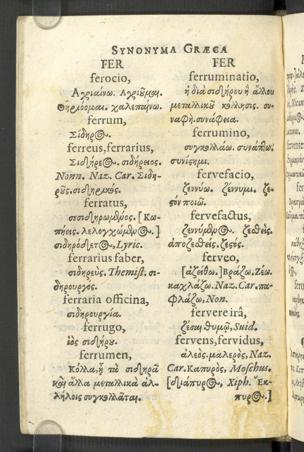 SYNONYMA GRÆCA
FER
ferocio,
Ἀγριαίνω. Ἀγριοῦμαι.
Θηριόομαι. χαλεπαίνω.
ferrum,
Σίδηρος.
ferreus, ferrarius,
Σιδήρεος. σιδήρειος.
Nonn. Naz. Car. Σιδη-
ροῦς. σιδηρικός.
ferratus,
σεσιδηρωμένος. [Κω-
πήεις. λελογχωμένος.]
σιδηρόπλητος, Lyric.
ferrarius faber,
σιδηρεύς. Themist. σι-
δηρουργός.
ferraria officina,
σιδηρουργία.
ferrugo,
ἰὸς σιδήρου.
ferrumen,
Κόλλα, ἢ τὰ σιδηρᾶ
καὶ ἄλλα μεταλλικὰ ἀλ-
λήλοις συγκολλᾶται.
FER
ferruminatio,
ἡ διὰ σιδήρου ἢ ἄλλου
μεταλλικοῦ κόλλησις. συ-
ναφή. συνάφεια.
ferrumino,
συγκολλάω. συνάπτω.
συνίσχημι.
fervefacio,
ζεννύω. ζέννυμι. ζε-
στὸν ποιῶ.
fervefactus,
ζεννύμενος. ζεσθείς.
ἀποζεσθείς. ζεστός.
ferveo,
[αἴθω.] Βράζω, Ζέω.
καχλάζω. Naz. Car. πα-
φλάζω, Non.
fervere ira,
ζέσαι θυμῷ, Suid.
fervens, fervidus,
ἀλεός. μαλερός, Naz.
Car. Καπυρός, Moschus.
[διάπυρος, Xiph. Ἔκ-
πυρος.]